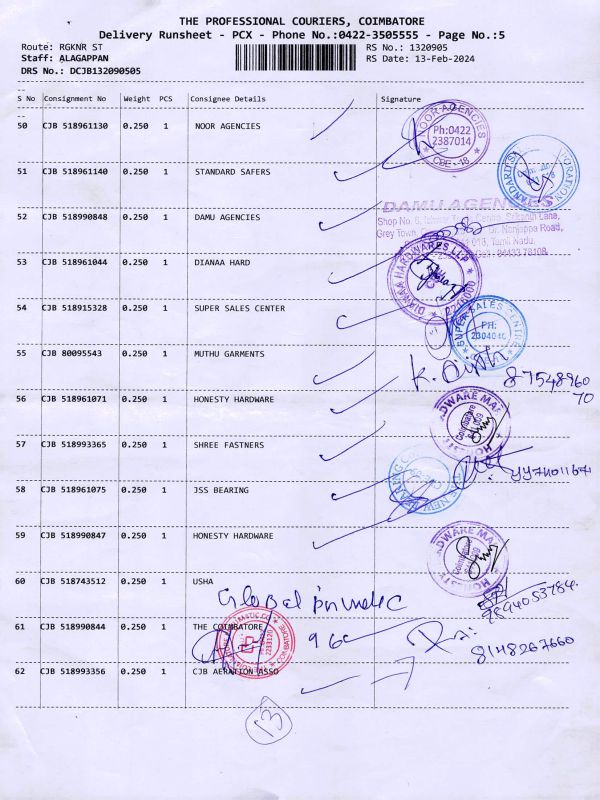 THE PROFESSIONAL COURIERS, COIMBATORE
Delivery Runsheet - PCX - Phone No.:0422-3505555 - Page No.:5
Route: RGKNR ST RS No.: 1320905
Staff: ALAGAPPAN RS Date: 13-Feb-2024
DRS No.: DCJB132090505
S No Consignment No Weight PCS Consignee Details Signature
50 CJB 518961130 0.250 1 NOOR AGENCIES
NOOR AGENCIES
Ph:0422
2387014
CBE - 18
51 CJB 518961140 0.250 1 STANDARD SAFERS
52 CJB 518990848 0.250 1 DAMU AGENCIES
DAMU AGENCIES
Lane,
Grey Town, Dr. Nanjappa Road,
Tamil Nadu.
53 CJB 518961044 0.250 1 DIANAA HARD
DIANAA HARDWARES LLP
54 CJB 518915328 0.250 1 SUPER SALES CENTER
SUPER SALES CENTRE
PH:
2304040
55 CJB 80095543 0.250 1 MUTHU GARMENTS
87548960
70
56 CJB 518961071 0.250 1 HONESTY HARDWARE
57 CJB 518993365 0.250 1 SHREE FASTNERS
58 CJB 518961075 0.250 1 JSS BEARING
THE NEW BEARING
59 CJB 518990847 0.250 1 HONESTY HARDWARE
60 CJB 518743512 0.250 1 USHA
Global
7894053784
61 CJB 518990844 0.250 1 THE COIMBATORE
COIMBATORE
8148267660
62 CJB 518993356 0.250 1 CJB AERATION ASSO
13